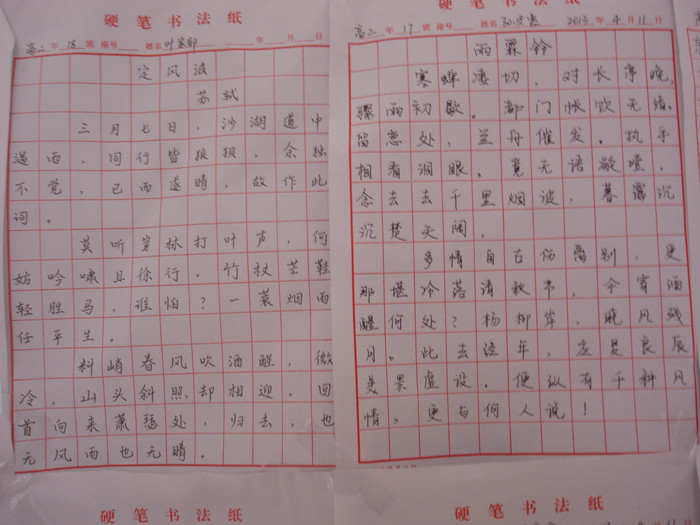 硬笔书法纸
高二 年 班 座号 姓名 年 月 日
定风波
苏轼
三月七日,沙湖道中
遇雨,同行皆狼狈,余独
不觉,已而遂晴,故作此
词。
莫听穿林打叶声,何
妨吟啸且徐行。竹杖芒鞋
轻胜马,谁怕?一蓑烟雨
任平生。
料峭春风吹酒醒,微
冷,山头斜照却相迎。回
首向来萧瑟处,归去,也
无风雨也无晴。
硬笔书法纸
硬笔书法纸
高二 年 17 班 座号 姓名 2013 年 4 月 11 日
雨霖铃
寒蝉凄切,对长亭晚,
骤雨初歇。都门帐饮无绪,
留恋处,兰舟催发。执手
相看泪眼,竟无语凝噎,
念去去千里烟波,暮霭沉
沉楚天阔。
多情自古伤离别,更
那堪冷落清秋节。今宵酒
醒何处?杨柳岸,晓风残
月。此去经年,应是良辰
美景虚设。便纵有千种风
情,更与何人说!
硬笔书法纸